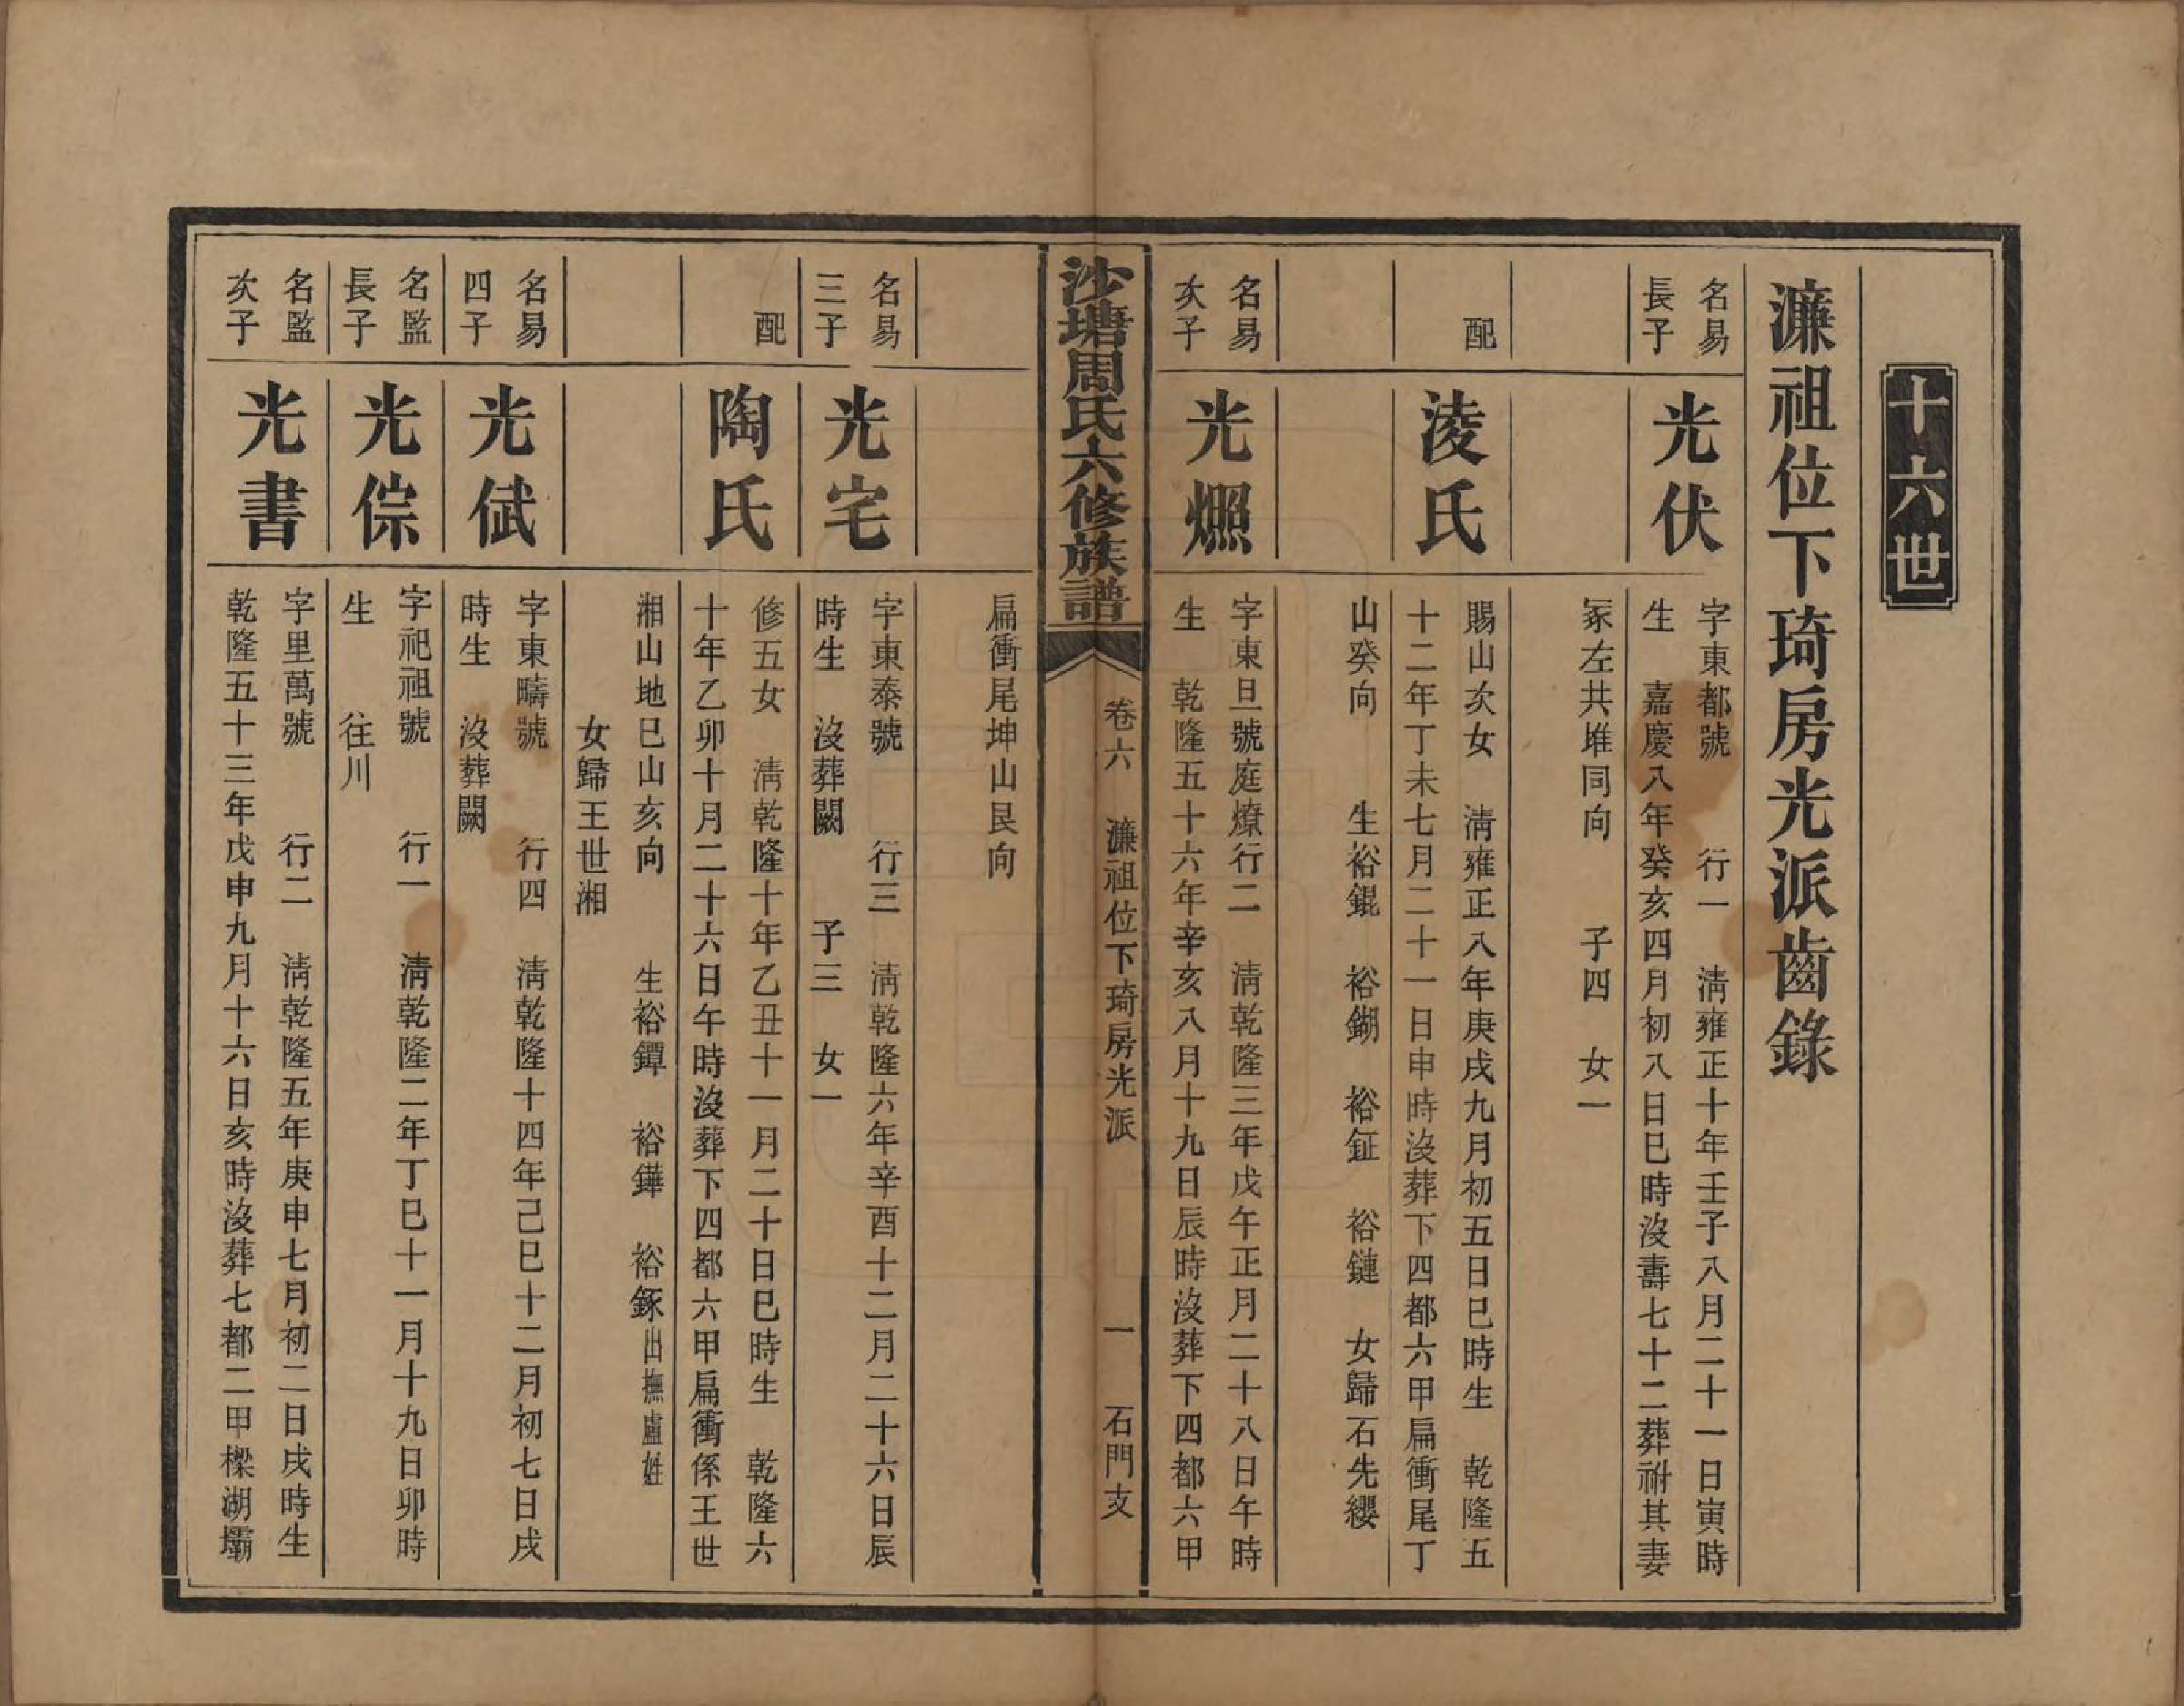 十六世
濂祖位下琦房光派齒錄
名易
長子
光伏
字東都號　　行一　淸雍正十年壬子八月二十一日寅時
生　嘉慶八年癸亥四月初八日巳時沒壽七十二葬祔其妻
冢左共堆同向　　子四　女一
配
淩氏
賜山次女　淸雍正八年庚戌九月初五日巳時生　乾隆五
十二年丁未七月二十一日申時沒葬下四都六甲扁衝尾丁
山癸向　　生裕錕　裕鍸　裕鉦　裕鏈　女歸石先纓
名易
次子
光燳
字東旦號庭燎行二　淸乾隆三年戊午正月二十八日午時
生　乾隆五十六年辛亥八月十九日辰時沒葬下四都六甲
沙塘周氏六修族譜
卷六　濂祖位下琦房光派　　一　石門支
扁衝尾坤山艮向
名易
三子
光宅
字東泰號　　行三　淸乾隆六年辛酉十二月二十六日辰
時生　沒葬闕　　子三　女一
配
陶氏
修五女　淸乾隆十年乙丑十一月二十日巳時生　乾隆六
十年乙卯十月二十六日午時沒葬下四都六甲扁衝係王世
湘山地巳山亥向　　生裕鐔　裕鏵　裕鋑出撫盧姓
女歸王世湘
名易
四子
光倵
字東疇號　　行四　淸乾隆十四年己巳十二月初七日戌
時生　沒葬闕
名監
長子
光倧
字祀祖號　　行一　淸乾隆二年丁巳十一月十九日卯時
生　　往川
名監
次子
光書
字里萬號　　行二　淸乾隆五年庚申七月初二日戌時生
乾隆五十三年戊申九月十六日亥時沒葬七都二甲樑湖壩